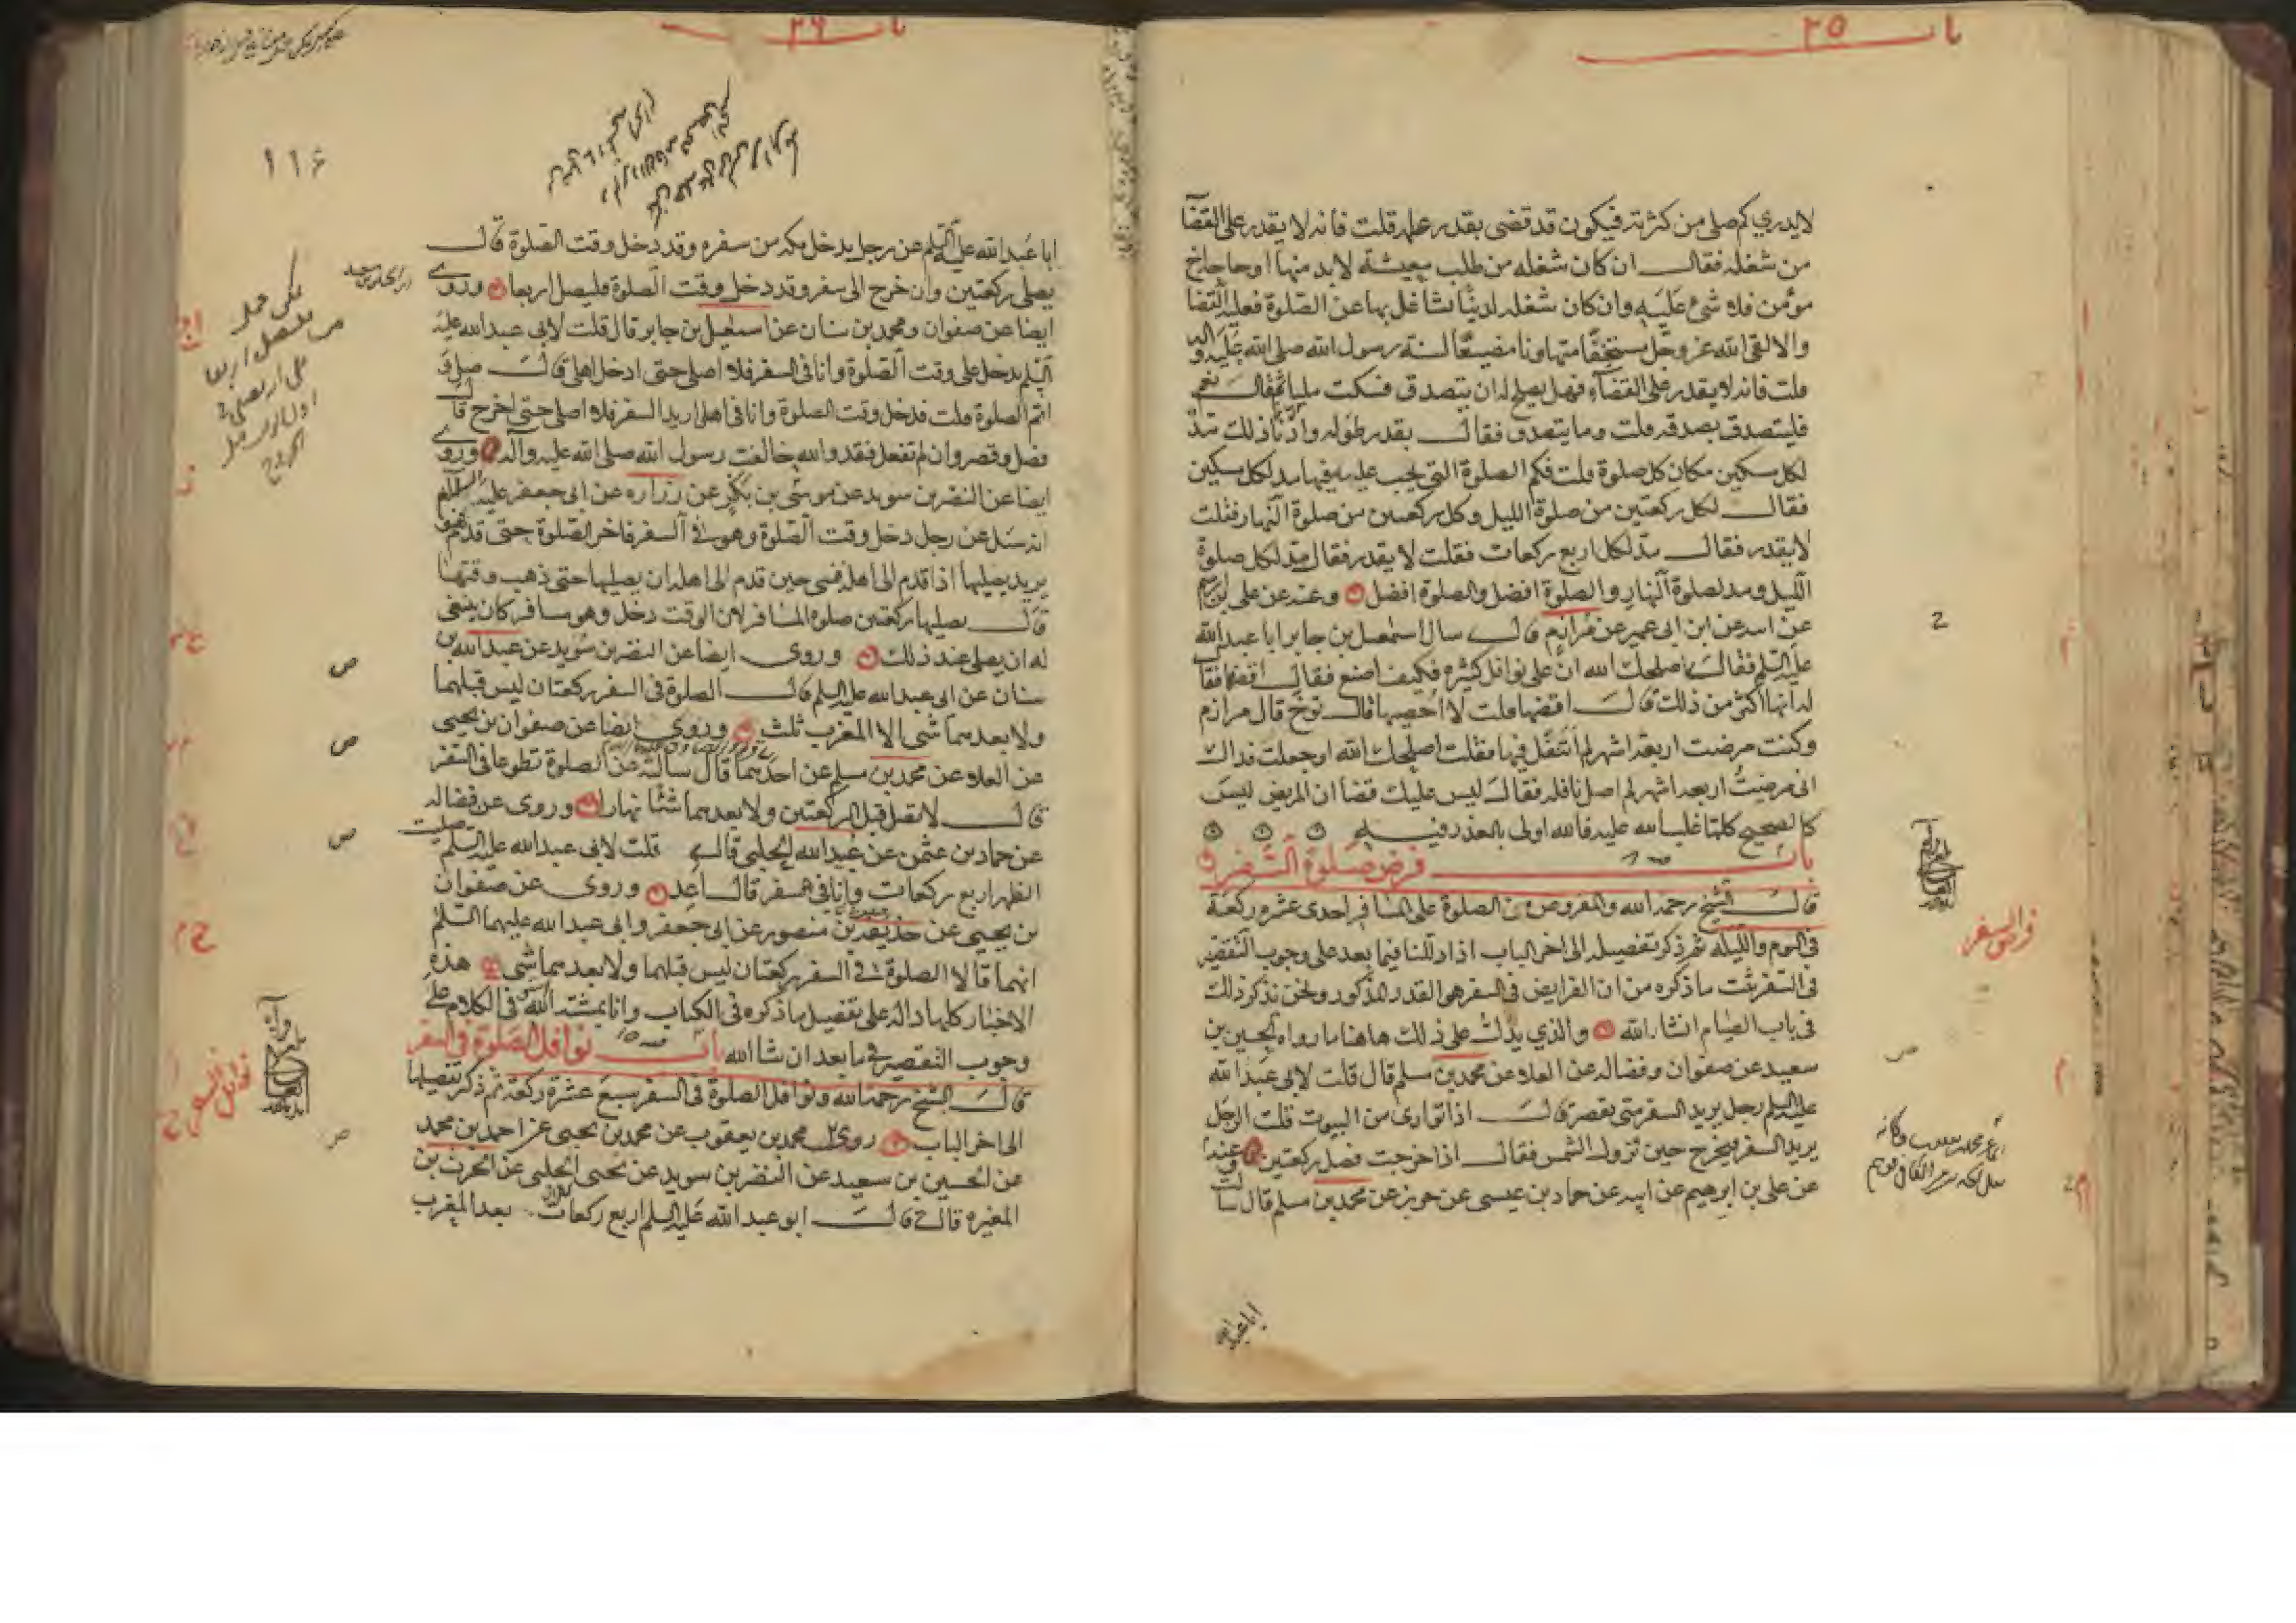 باب ٢٥
لا يدري كم صلى من كثرته فيكون قد قضى بقدر علمه قلت فانه لا يقدر على القضآ
من شغله فقال ان كان شغله من طلب معيشة لا بد منها او حاجة اخ
مؤمن فلا شئ عليه وان كان شغله لدنيا تشاغل بها عن الصلوة فعليه القضا
والا لقي الله عز وجل مستخفا متهاونا مضيعا لسنة رسول الله صلى الله عليه وآله
قلت فانه لا يقدر على القضآء فهل يصلح له ان يتصدق فسكت مليا ثم قال نعم
فليتصدق بصدقة قلت وما يتصدق فقال بقدر طوله وادنا ذلك مد
لكل مسكين مكان كل صلوة قلت فكم الصلوة التي يجب عليه فيها مد لكل مسكين
فقال لكل ركعتين من صلوة الليل وكل ركعتين من صلوة النهار فقلت
لا يقدر فقال مد لكل اربع ركعات فقلت لا يقدر فقال مد لكل صلوة
الليل ومد لصلوة النهار والصلوة افضل والصلوة افضل وعنه عن علي بن ابرهيم
عن ابيه عن ابن ابي عمير عن مرازم قال سال اسمعيل بن جابر ابا عبد الله
عليه السلم فقال اصلحك الله ان علي نوافل كثيرة فكيف اصنع فقال اقضها فقا
له انها اكثر من ذلك قال اقضها قلت لا احصيها قال توخ قال مرازم
وكنت مرضت اربعة اشهر لم اتنفل فيها فقلت اصلحك الله او جعلت فداك
اني مرضت اربعة اشهر لم اصل نافلة فقال ليس عليك قضا ان المريض ليس
كالصحيح كلما غلب الله عليه فالله اولى بالعذر فيه
باب فرض صلوة السفر
قال الشيخ رحمه الله والمفروض من الصلوة على المسافر احدى عشرة ركعة
في اليوم والليلة ثم ذكر تفصيله الى اخر الباب اذا دللنا فيما بعد على وجوب التقصير
في السفر ثبت ما ذكره من ان الفرايض في السفر هو القدر المذكور ونحن نذكر ذلك
في باب الصيام انشا الله والذي يدل على ذلك هاهنا ما رواه الحسين بن
سعيد عن صفوان وفضالة عن العلا عن محمد بن مسلم قال قلت لابي عبد الله
عليه السلم رجل يريد السفر متى يقصر قال اذا توارى من البيوت قلت الرجل
يريد السفر فيخرج حين تزول الشمس فقال اذا خرجت فصل ركعتين وعنه
عن علي بن ابرهيم عن ابيه عن حماد بن عيسى عن حريز عن محمد بن مسلم قال سالت
فرايض السفر
ابا عبد الله
باب ٢٦
١١٦
ابا عبد الله عليه السلم عن رجل يدخل مكة من سفره وقد دخل وقت الصلوة قال
يصلي ركعتين وان خرج الى سفر وقد دخل وقت الصلوة فليصل اربعا وروى
ايضا عن صفوان ومحمد بن سنان عن اسمعيل بن جابر قال قلت لابي عبد الله عليه
السلم يدخل علي وقت الصلوة وانا في السفر فلا اصلي حتى ادخل اهلي قال صل و
اتم الصلوة قلت فدخل وقت الصلوة وانا في اهلي اريد السفر فلا اصلي حتى اخرج قال
فصل وقصر وان لم تفعل فقد والله خالفت رسول الله صلى الله عليه وآله وروى
ايضا عن النضر بن سويد عن موسى بن بكر عن زرارة عن ابي جعفر عليه السلم
انه سئل عن رجل دخل وقت الصلوة وهو في السفر فاخر الصلوة حتى قدم فهو
يريد يصليها اذا قدم الى اهله فنسي حين قدم الى اهله ان يصليها حتى ذهب وقتها
قال يصليها ركعتين صلوة المسافر لان الوقت دخل وهو مسافر كان ينبغي
له ان يصلي عند ذلك وروى ايضا عن النضر بن سويد عن عبد الله بن
سنان عن ابي عبد الله عليه السلم قال الصلوة في السفر ركعتان ليس قبلهما
ولا بعدهما شئ الا المغرب ثلث وروى ايضا عن صفوان بن يحيى
عن العلا عن محمد بن مسلم عن احدهما قال سالته عن الصلوة تطوعا في السفر
قال لا تصل قبل الركعتين ولا بعدهما شيئا نهارا وروى عن فضالة
عن حماد بن عثمن عن عبيد الله الحلبي قال قلت لابي عبد الله عليه السلم صليت
الظهر اربع ركعات وانا في سفر قال اعد وروى عن صفوان
بن يحيى عن حذيفة بن منصور عن ابي جعفر وابي عبد الله عليهما السلم
انهما قالا الصلوة في السفر ركعتان ليس قبلهما ولا بعدهما شئ هذه
الاخبار كلها دالة على تفصيل ما ذكره في الكتاب وانا بمشية الله في الكلام على
وجوب التقصير فيما بعد ان شا الله باب نوافل الصلوة في السفر
قال الشيخ رحمه الله ونوافل الصلوة في السفر سبع عشرة ركعة ثم ذكر تفصيلها
الى اخر الباب روى محمد بن يعقوب عن محمد بن يحيى عن احمد بن محمد
عن الحسين بن سعيد عن النضر بن سويد عن يحيى الحلبي عن الحرث بن
المغيرة قال قال ابو عبد الله عليه السلم اربع ركعات بعد المغرب